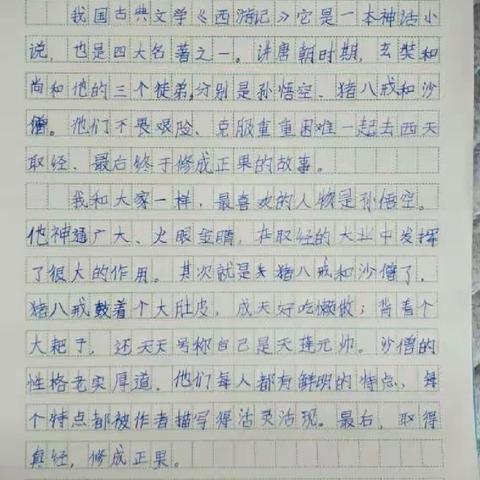 我国古典文学《西游记》它是一本神话小
说，也是四大名著之一。讲唐朝时期，玄奘和
尚和他的三个徒弟，分别是孙悟空、猪八戒和沙
僧。他们不畏艰险、克服重重困难一起去西天
取经、最后终于修成正果的故事。
我和大家一样，最喜欢的人物是孙悟空。
他神通广大、火眼金睛，在取经的大业中发挥
了很大的作用。其次就是猪八戒和沙僧了，
猪八戒鼓着个大肚皮，成天好吃懒做；背着个
大耙子，还天天号称自己是天蓬元帅。沙僧的
性格老实厚道。他们每人都有鲜明的特点，每
个特点都被作者描写得活灵活现。最后，取得
真经，修成正果。